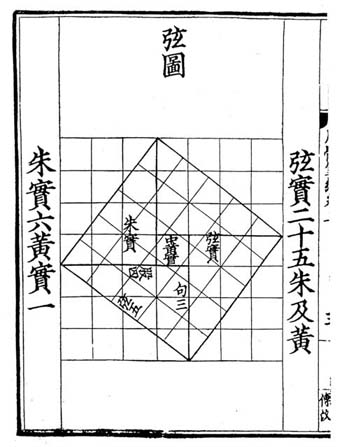 弦圖
弦實二十五朱及黃
朱實六黃實一
朱實
中黃實
弦實
股四
句三
弦五